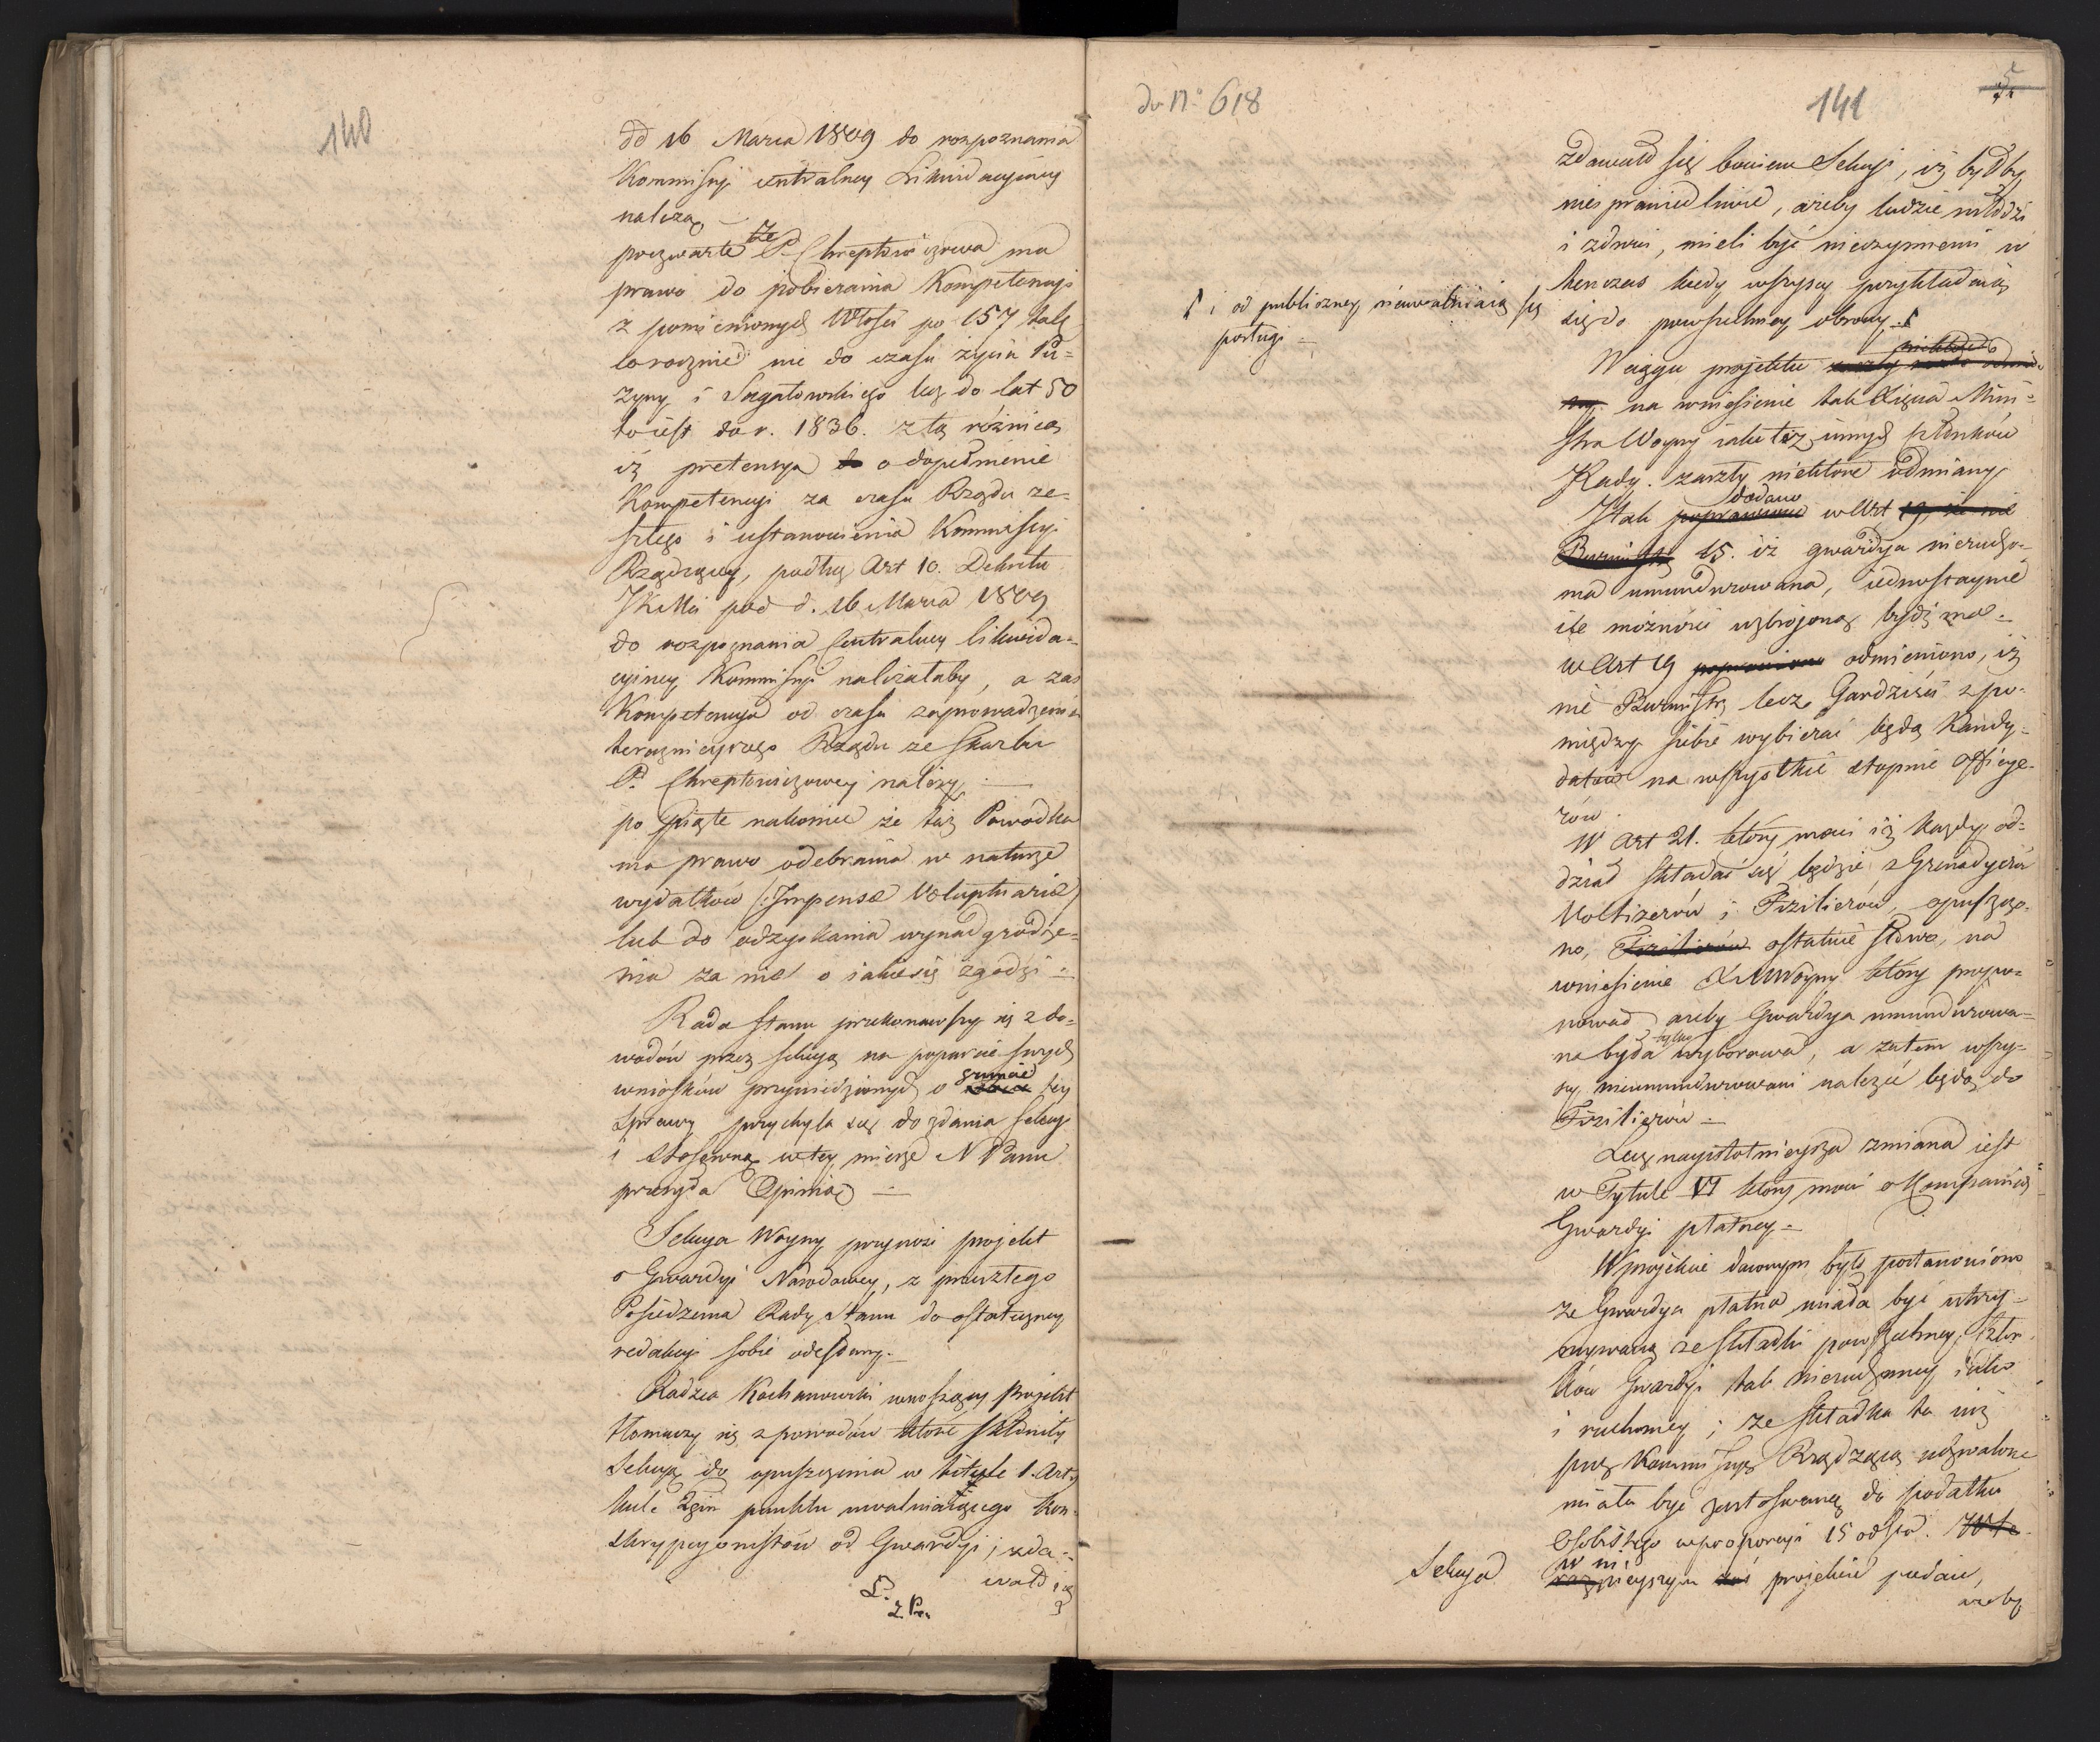 140
dd 16 Marca 1809 do rozpoznania
Kommissyi centralney Likwidacyiney
należą —
poczwarte że P. Chreptowiczowa ma
prawo do pobierania Kompetencyi
z pomienionych Włości po 157 tal:
corocznie nie do czasu życia Pu-
zyny i Szgatowskiego lecz do lat 50
to iest do r. 1836. z tą różnicą
iż pretensya do o dopełnienie
Kompetencyi za czasu Rządu ze-
szłego i ustanowienia Kommissyi
Rządzącey, podług Art 10. Dekretu
JKMci pod d. 16 Marca 1809
do rozpoznania Centralney likwida-
cyiney Kommissyi należałaby, a zaś
Kompetencya od czasu zaprowadzenia
teraznieyszego Rządu ze Skarbu
P. Chreptowiczowey należy. —
po piąte nakoniec że taż Powodka
ma prawo odebrania w naturze
wydatków (:Impensae Voluptuariae)
lub do odzyskania wynadgrodze-
nia za nie o iakie się zgodzi —
Rada Stanu przekonawszy się z do-
wodów przez Sekcyą na poparcie swych
wniosków przywiedzionych o gruncie tey
sprawy przychyla się do zdania Sekcyi
i stosowną w tey mierze N Panu
przesyła Opinią —
Sekcya Woyny przynosi projekt
o Gwardyi Narodowey, z przeszłego
Posiedzenia Rady Stanu do ostateczney
redakcyi sobie odesłany. —
Radzca Kochanowski wnoszący projekt
tłomaczy się z powodów które skłoniły
Sekcyą do opuszczenia w tytule 1. Arty-
kule 2gim punktu uwalniaiącego Kon-
skrypcyonistów od Gwardyi; zda-
wało się
do No 618
141
zdawało się bowiem Sekcyi, iż byłoby
niesprawiedliwie, ażeby ludzie młodzi
i zdrowi, mieli być nieczynnemi w
tenczas kiedy wszyscy przykładaią
się do powszechney obrony.
i od publiczney nieuwalniaią się
posługi —
W ciągu projektu
na wniesienie tak Xięcia Mini-
stra Woyny iako też innych Członków
Rady. zaszły niektóre odmiany
I tak poprawiono dodano w Art 19, że nie
Burmistrz 15. iż gwardya nierucho-
ma umundurowana, iednostaynie
ile możności uzbrojoną bydź ma —
w Art 19 poprawiono odmieniono, iż
nie Burmistrz lecz Gardziści z po-
między siebie wybierać będą Kandy-
datów na wszystkie stopnie Officye-
rów.
W Art 21. który mówi iż każdy od-
dział składać się będzie z Grenadyerów
Voltizerów i Fizilierów, opuszczo-
no, Fizilierów ostatnie słowo, na
wniesienie X M Woyny który propo-
nował ażeby Gwardya umundurowa-
na była tylko wyborowa, a zatem wszy-
scy nieumundurowani należeć będą do
Fizilierów —
Lecz nayistotnieysza zmiana iest
w Tytule VI który mówi o Kompanii
Gwardyi płatney. —
W projekcie dawnym było postanowiono
że Gwardya płatna miała być utrzy-
mywaną ze składki powszechney Człon-
ków Gwardyi tak nieruchomey iako
i ruchomey; że składka ta iuż
przez Kommissyą Rządzącą uchwalona
miała być zastosowaną do podatku
Osobistego w proporcyi 15 od sta. W te
Sekcya w ninieyszym zaś projekcie podaie,
ażeby